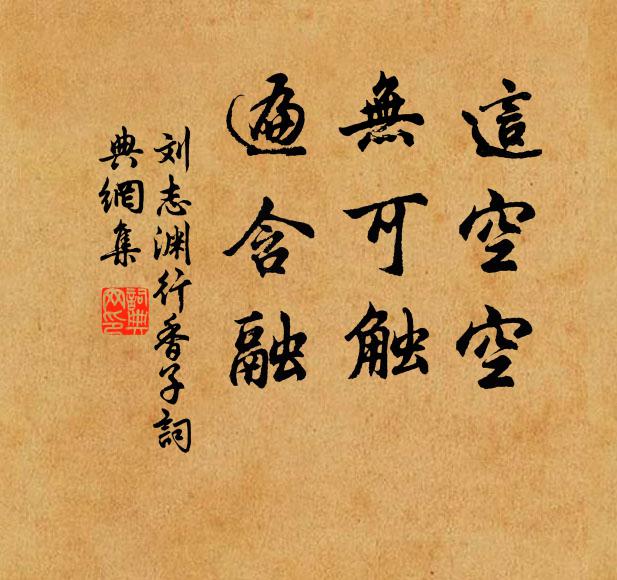 這空空
無可触
遍含融
刘志渊行香子詞
典網集
詞典
网印